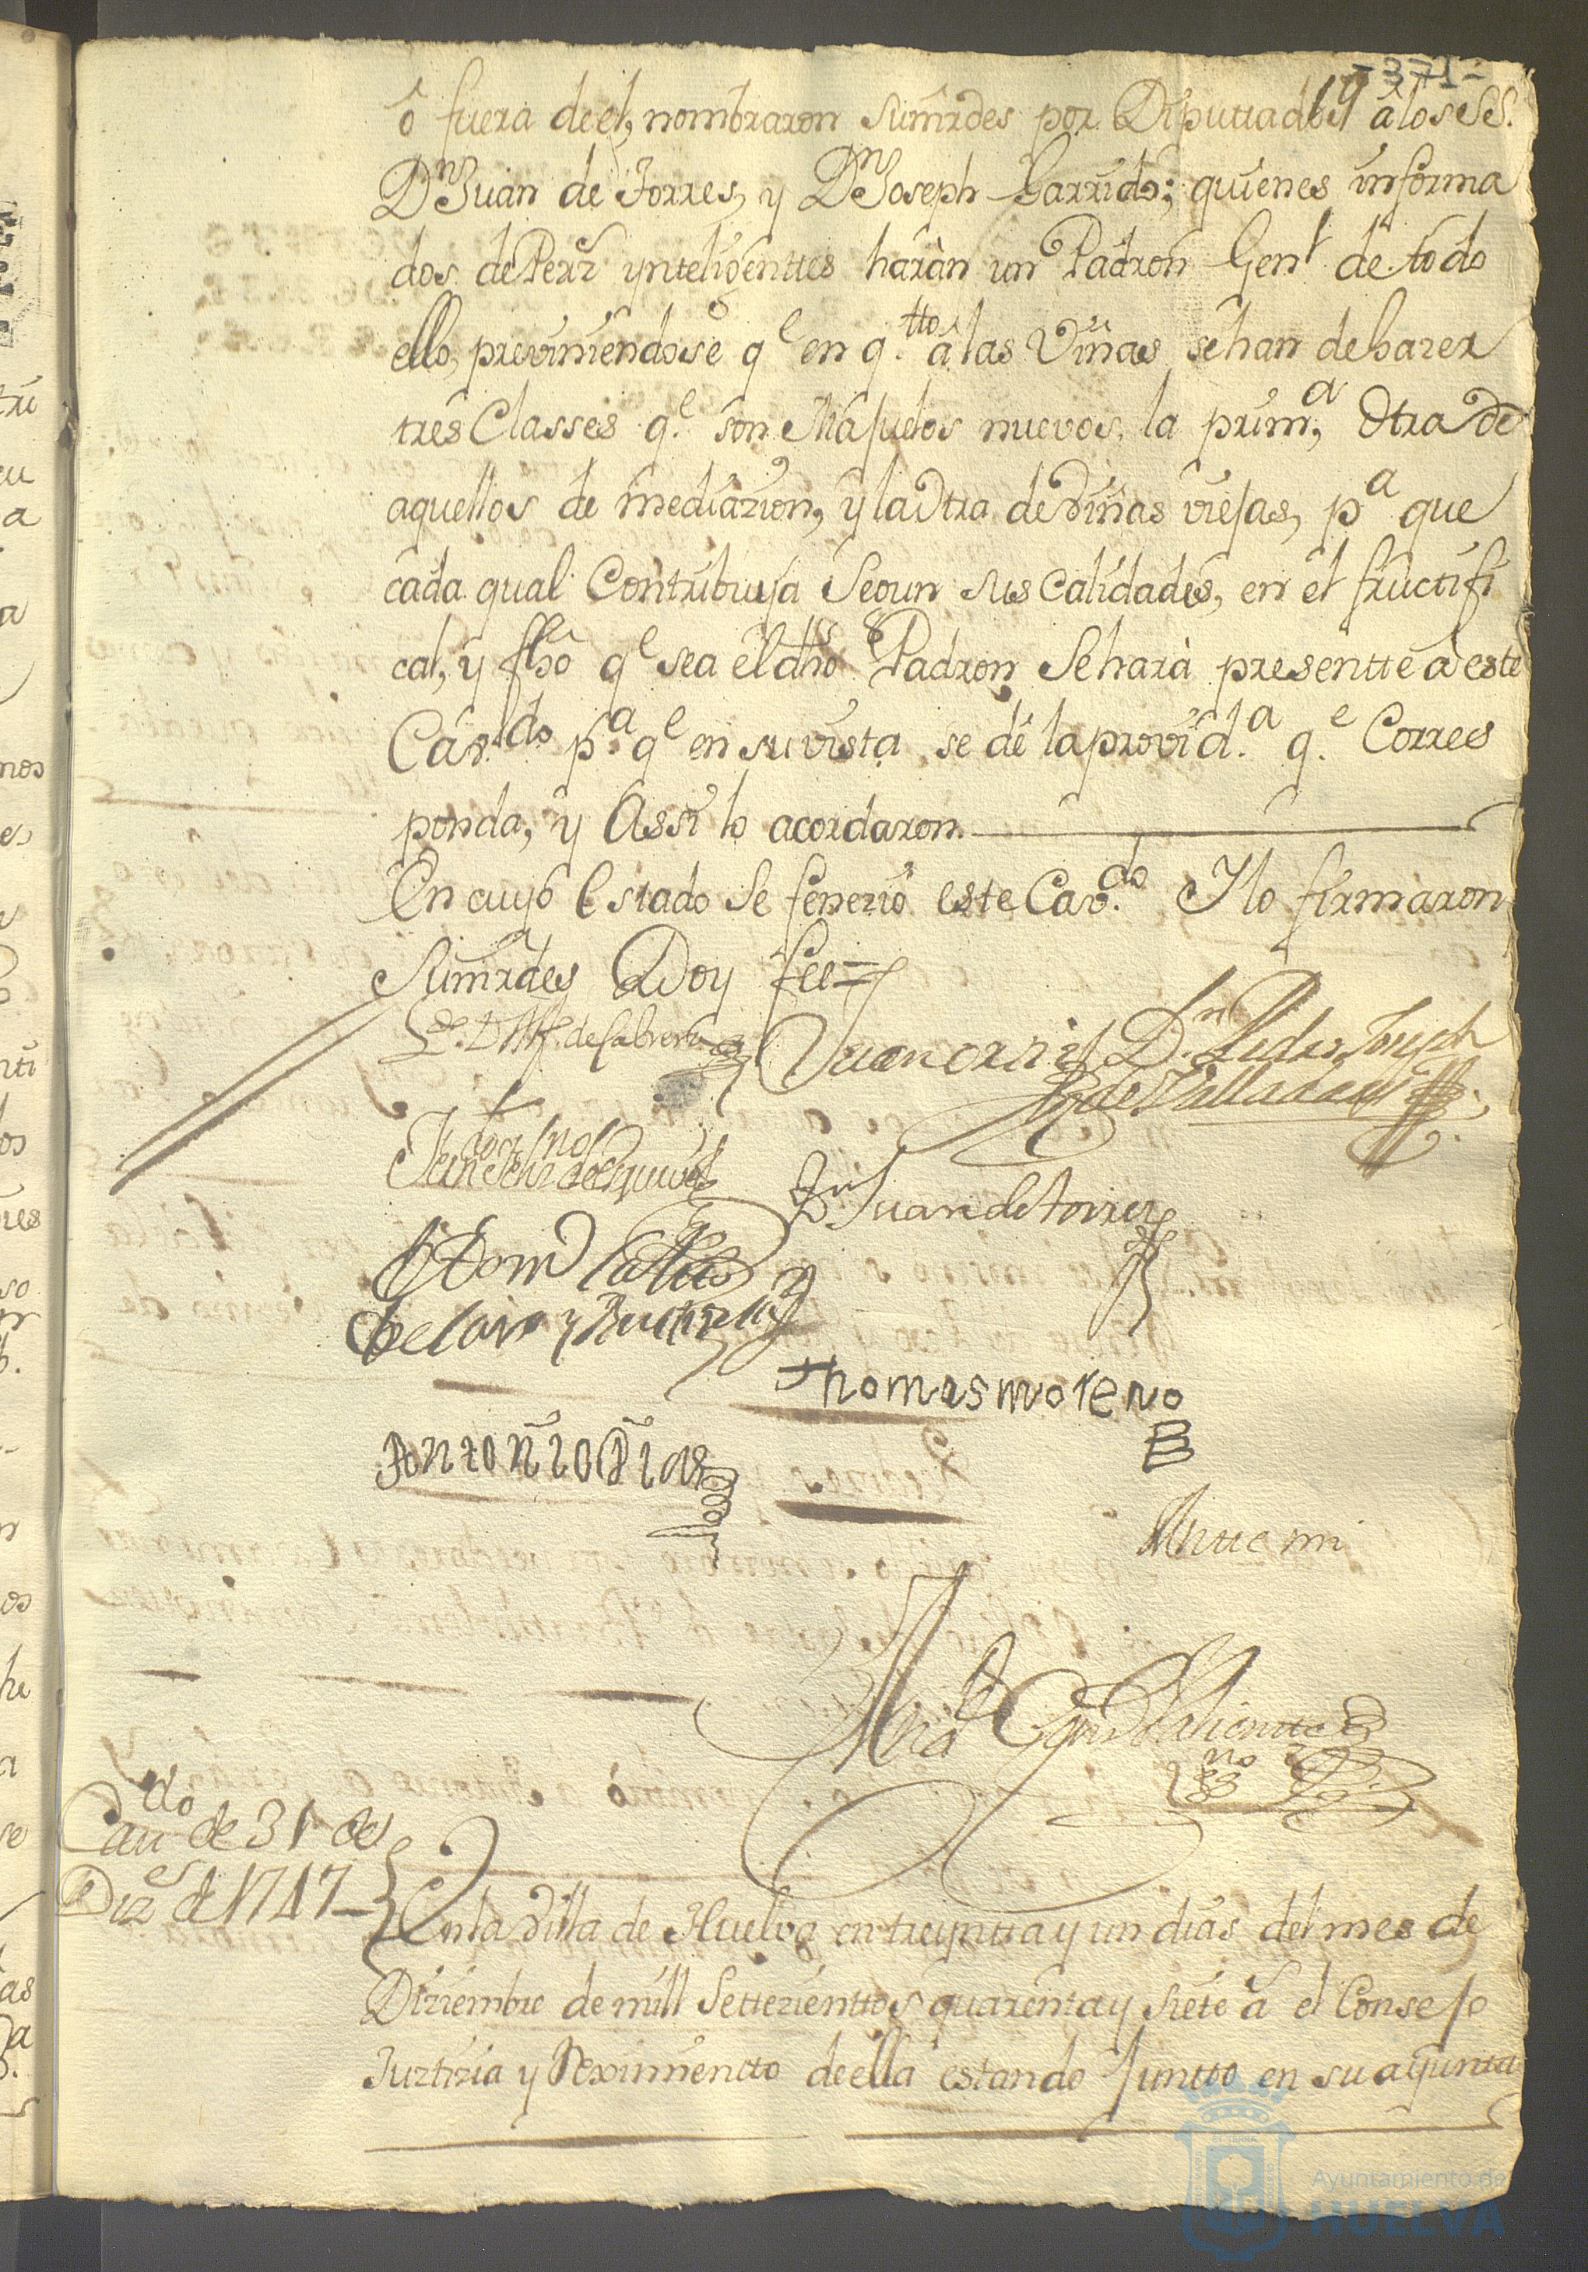 -371-
ô fuera deel, nombraron Sumrdes por Diputtados â los SS.
Dn Juan de Torres, y Dn Joseph Garrido; quienes informa
dos de Persз ynteligenttes haràn un Padron Genl de todo
ello, previniendose qe en q.tto â las Viñas se han de hazer
tres Classes q.e son Majuelos nuevos, la prim.a, Otra de
aquellos de mediazion, y la Otra de Viñas viejas, pa que
cada qual Contribuya Segun sus Calidades, en el fructifi
cal, y fho qe sea el dho Padron Se harà presentte à este
Cav.do pa qe en su vista, se dê la provid.a q.e Corres
ponda, y Assi lo acordaron.
En cuyo Estado Se fenezio este Cav.do Y lo firmaron
Sumrdes Doy fee=
Juan ortiz
Dn Pedro Joseph
de Valladares
Dn Juan de torres
Thomas moreno
Antoñio Dias
Antte mi
Cavdo de 31 de
Dize de 1747
En la Villa de Huelva en treyntta y un dias del mes de
Diziembre de mill Settezienttos quarenta y siete â el Consejo
Justizia y Reximientto de ella estando Juntto en su ayunta
Ayuntamiento de
HUELVA